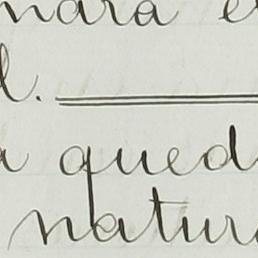 mara e
l.
a qued
natur